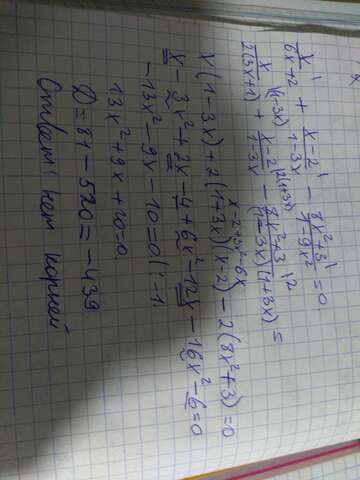 x/(6x+2) + (x-2)/(1-3x) - (8x²+3)/(1-9x²) = 0.
x/(2(3x+1)) + (x-2)/(1-3x) - (8x²+3)/((1-3x)(1+3x)) =
x-2+3x²-6x
x(1-3x)+2(1+3x)(x-2)-2(8x²+3)=0
x-3x²+2x-4+6x²-12x-16x²-6=0
-13x²-9x-10=0 |·-1.
13x²+9x+10=0.
D=81-520=-439.
Ответ: нет корней